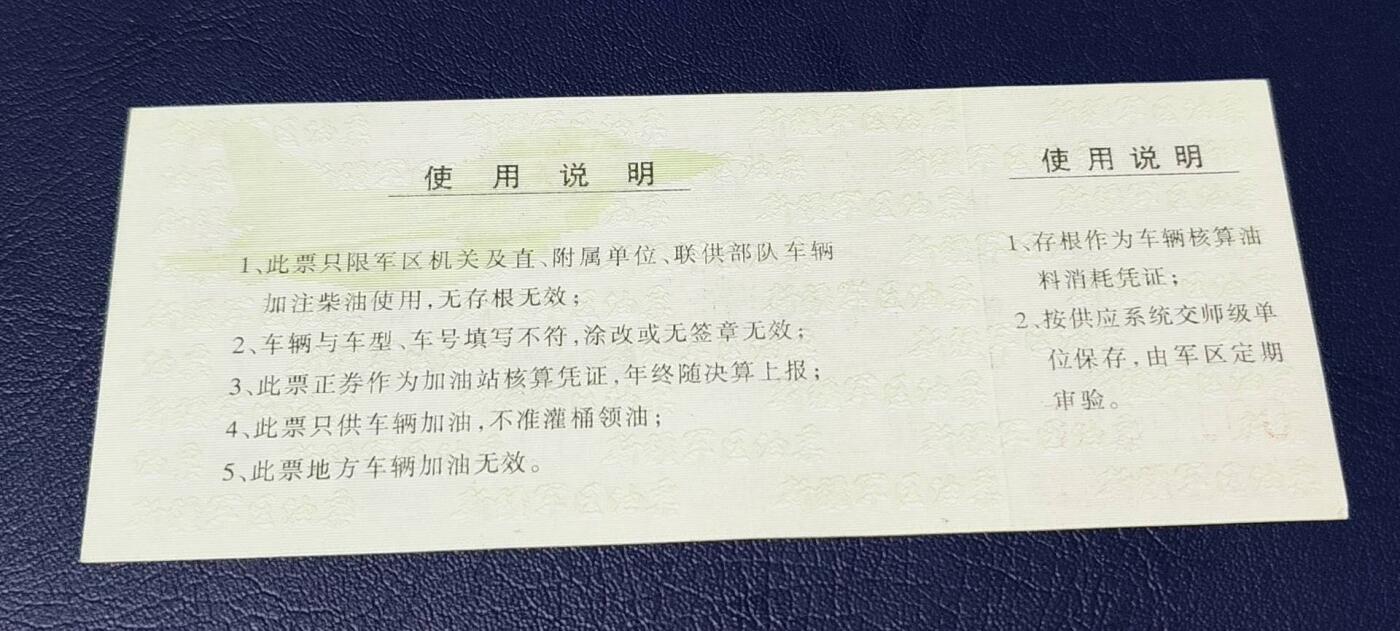 使用说明
1、此票只限军区机关及直、附属单位、联供部队车辆
加注柴油使用,无存根无效;
2、车辆与车型、车号填写不符,涂改或无签章无效;
3、此票正券作为加油站核算凭证,年终随决算上报;
4、此票只供车辆加油,不准灌桶领油;
5、此票地方车辆加油无效。
使用说明
1、存根作为车辆核算油
料消耗凭证;
2、按供应系统交师级单
位保存,由军区定期
审验。